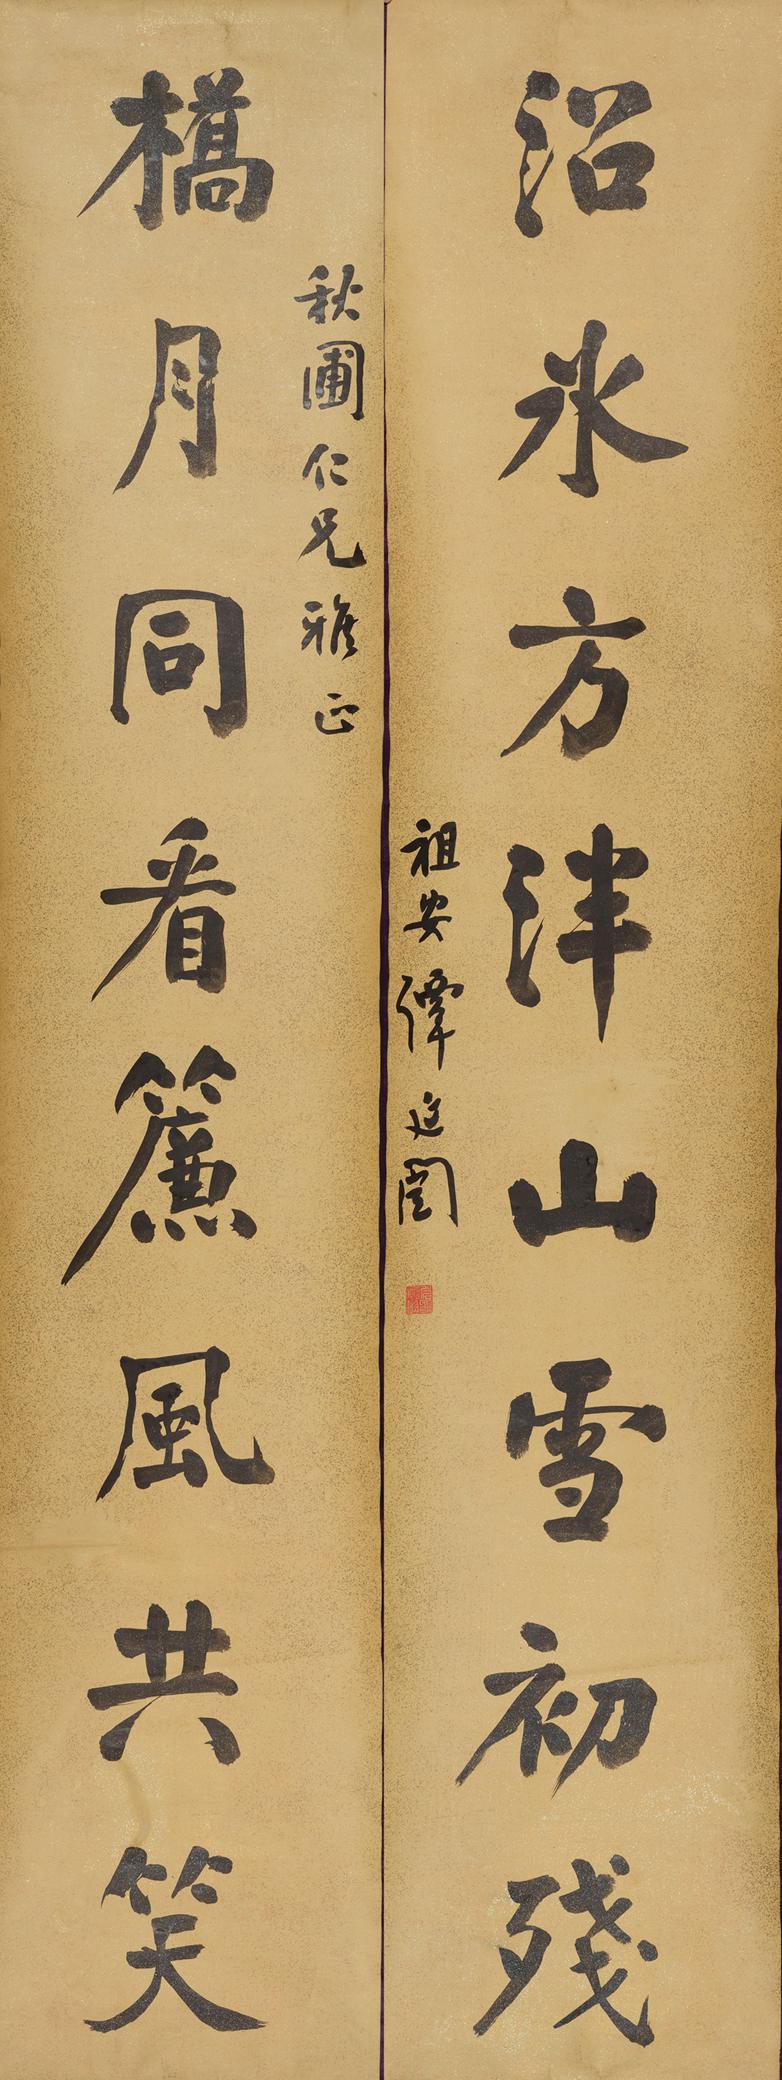 沼冰方泮山雪初殘
祖安譚延闓
秋圃仁兄雅正
橋月同看簾風共笑